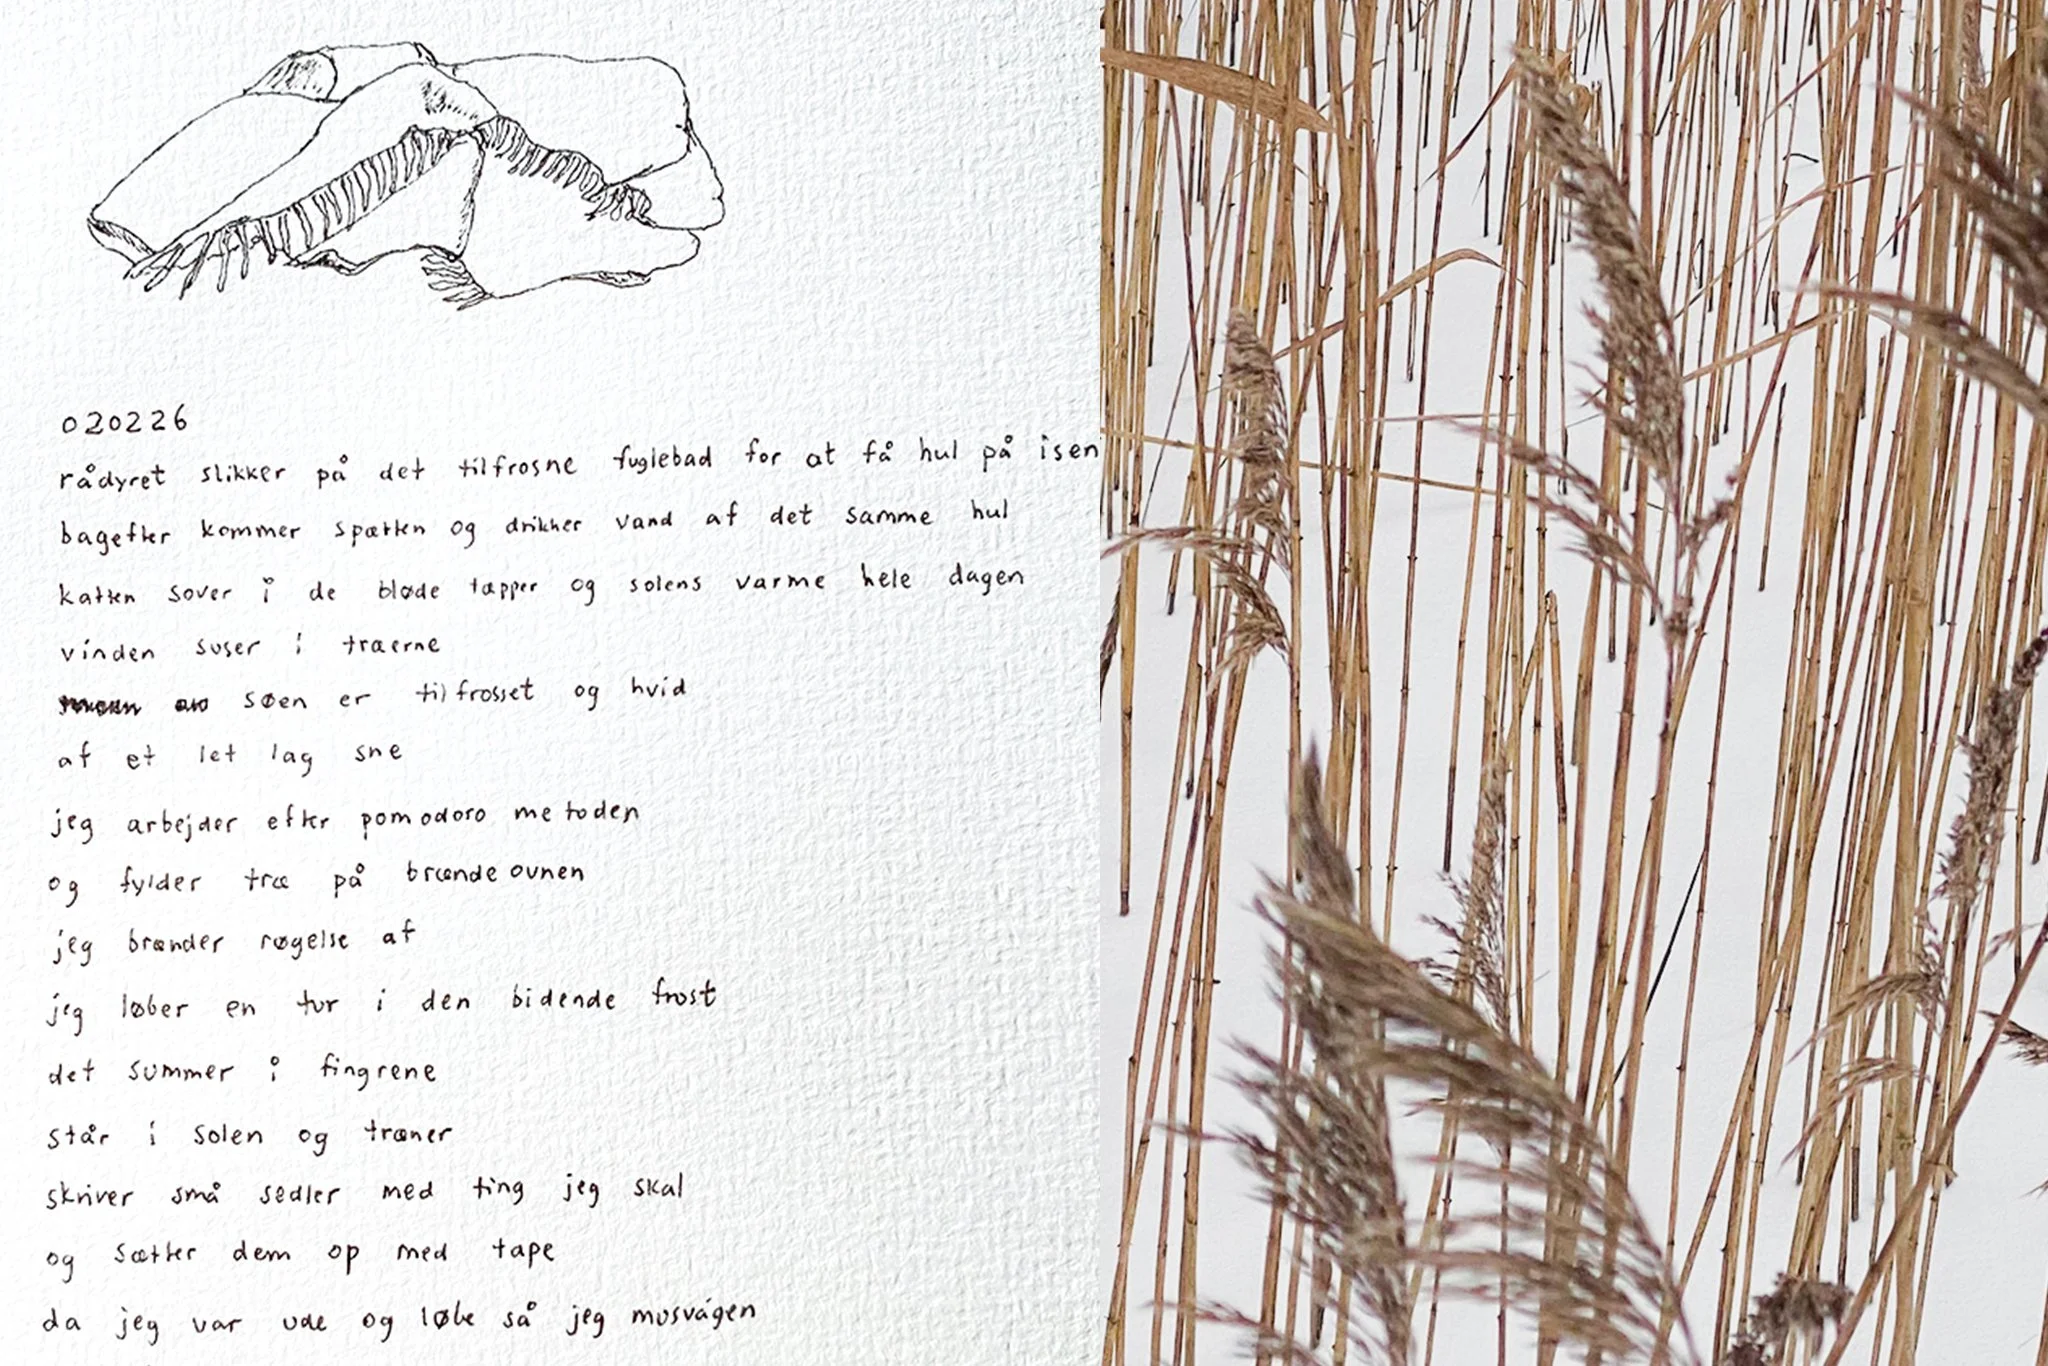 020226
rådyret slikker på det tilfrosne fuglebad for at få hul på isen
bagefter kommer spætten og drikker vand af det samme hul
katten sover i de bløde tæpper og solens varme hele dagen
vinden suser i træerne
søen er tilfrosset og hvid
af et let lag sne
jeg arbejder efter pomodoro metoden
og fylder træ på brændeovnen
jeg brænder røgelse af
jeg løber en tur i den bidende frost
det summer i fingrene
står i solen og træner
skriver små sedler med ting jeg skal
og sætter dem op med tape
da jeg var ude og løbe så jeg musvågen